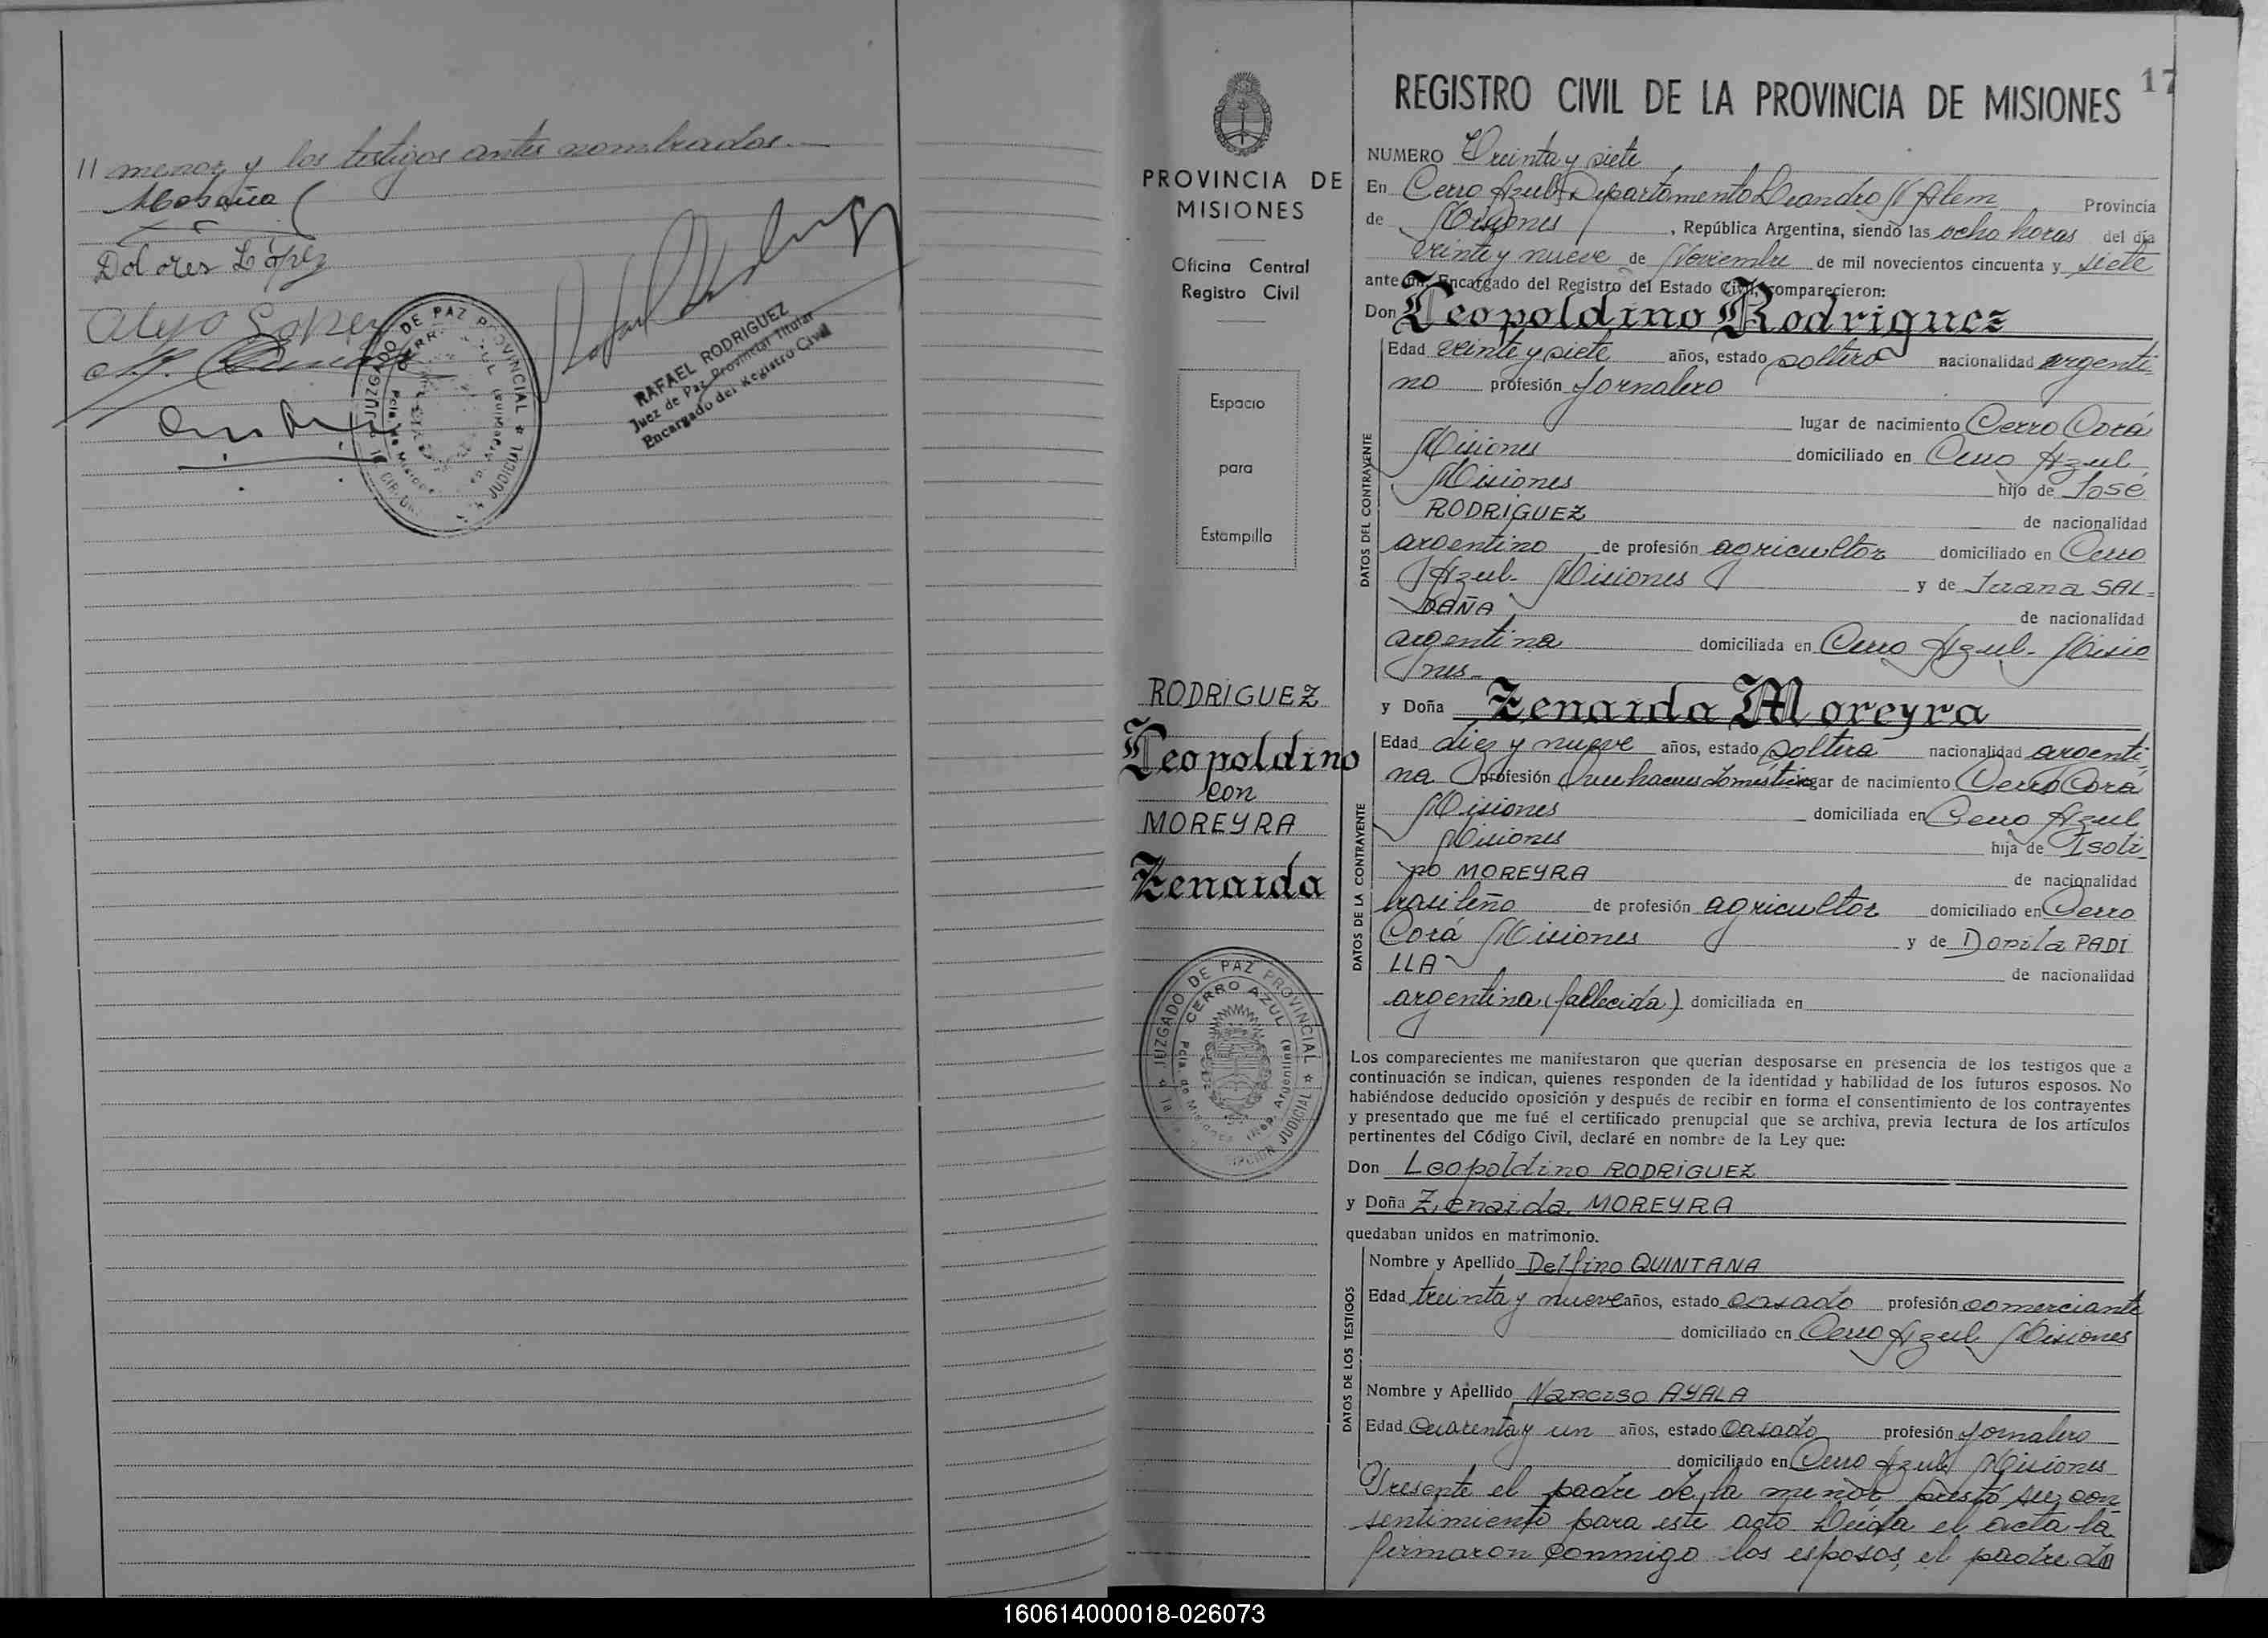 // menor y los testigos antes nombrados.-
Dolores López
Alejo Lopez
JUZGADO DE PAZ PROVINCIAL
JUDICIAL
RAFAEL RODRIGUEZ
Juez de Paz Provincial Titular
Encargado del Registro Civil
17
PROVINCIA DE
MISIONES
Oficina Central
Registro Civil
Espacio
para
Estampilla
RODRIGUEZ
Leopoldino
con
MOREYRA
Zenaida
JUZGADO DE PAZ PROVINCIAL
CERRO AZUL
Pcia. de Misiones (Rep. Argentina)
JUDICIAL
REGISTRO CIVIL DE LA PROVINCIA DE MISIONES
NUMERO Treinta y siete
En Cerro Azul, Departamento Leandro N Alem Provincia
de Misiones, República Argentina, siendo las ocho horas del día
veinte y nueve de Noviembre de mil novecientos cincuenta y siete
ante mí, Encargado del Registro del Estado Civil, comparecieron:
Don Leopoldino Rodriguez
DATOS DEL CONTRAYENTE
Edad veinte y siete años, estado soltero nacionalidad argenti-
no profesión jornalero
lugar de nacimiento Cerro Corá
Misiones domiciliado en Cerro Azul
Misiones hijo de José
RODRIGUEZ de nacionalidad
argentino de profesión agricultor domiciliado en Cerro
Azul- Misiones y de Juana SAL-
DAÑA de nacionalidad
argentina domiciliada en Cerro Azul- Misio
nes-
y Doña Zenaida Moreyra
DATOS DE LA CONTRAYENTE
Edad diez y nueve años, estado soltera nacionalidad argenti-
na profesión Quehaceres domésticos lugar de nacimiento Cerro Corá
Misiones domiciliada en Cerro Azul
Misiones hija de Isoli-
no MOREYRA de nacionalidad
brasileño de profesión agricultor domiciliado en Cerro
Corá Misiones y de Donila PADI
LLA de nacionalidad
argentina (fallecida) domiciliada en
Los comparecientes me manifestaron que querían desposarse en presencia de los testigos que a
continuación se indican, quienes responden de la identidad y habilidad de los futuros esposos. No
habiéndose deducido oposición y después de recibir en forma el consentimiento de los contrayentes
y presentado que me fué el certificado prenupcial que se archiva, previa lectura de los artículos
pertinentes del Código Civil, declaré en nombre de la Ley que:
Don Leopoldino RODRIGUEZ
y Doña Zenaida MOREYRA
quedaban unidos en matrimonio.
DATOS DE LOS TESTIGOS
Nombre y Apellido Delfino QUINTANA
Edad treinta y nueve años, estado casado profesión comerciante
domiciliado en Cerro Azul Misiones
Nombre y Apellido Narciso AYALA
Edad Cuarenta y un años, estado Casado profesión jornalero
domiciliado en Cerro Azul Misiones
Presente el padre de la menor prestó su con
sentimiento para este acto Leida el acta la
firmaron conmigo los esposos, el padre de la
160614000018-026073